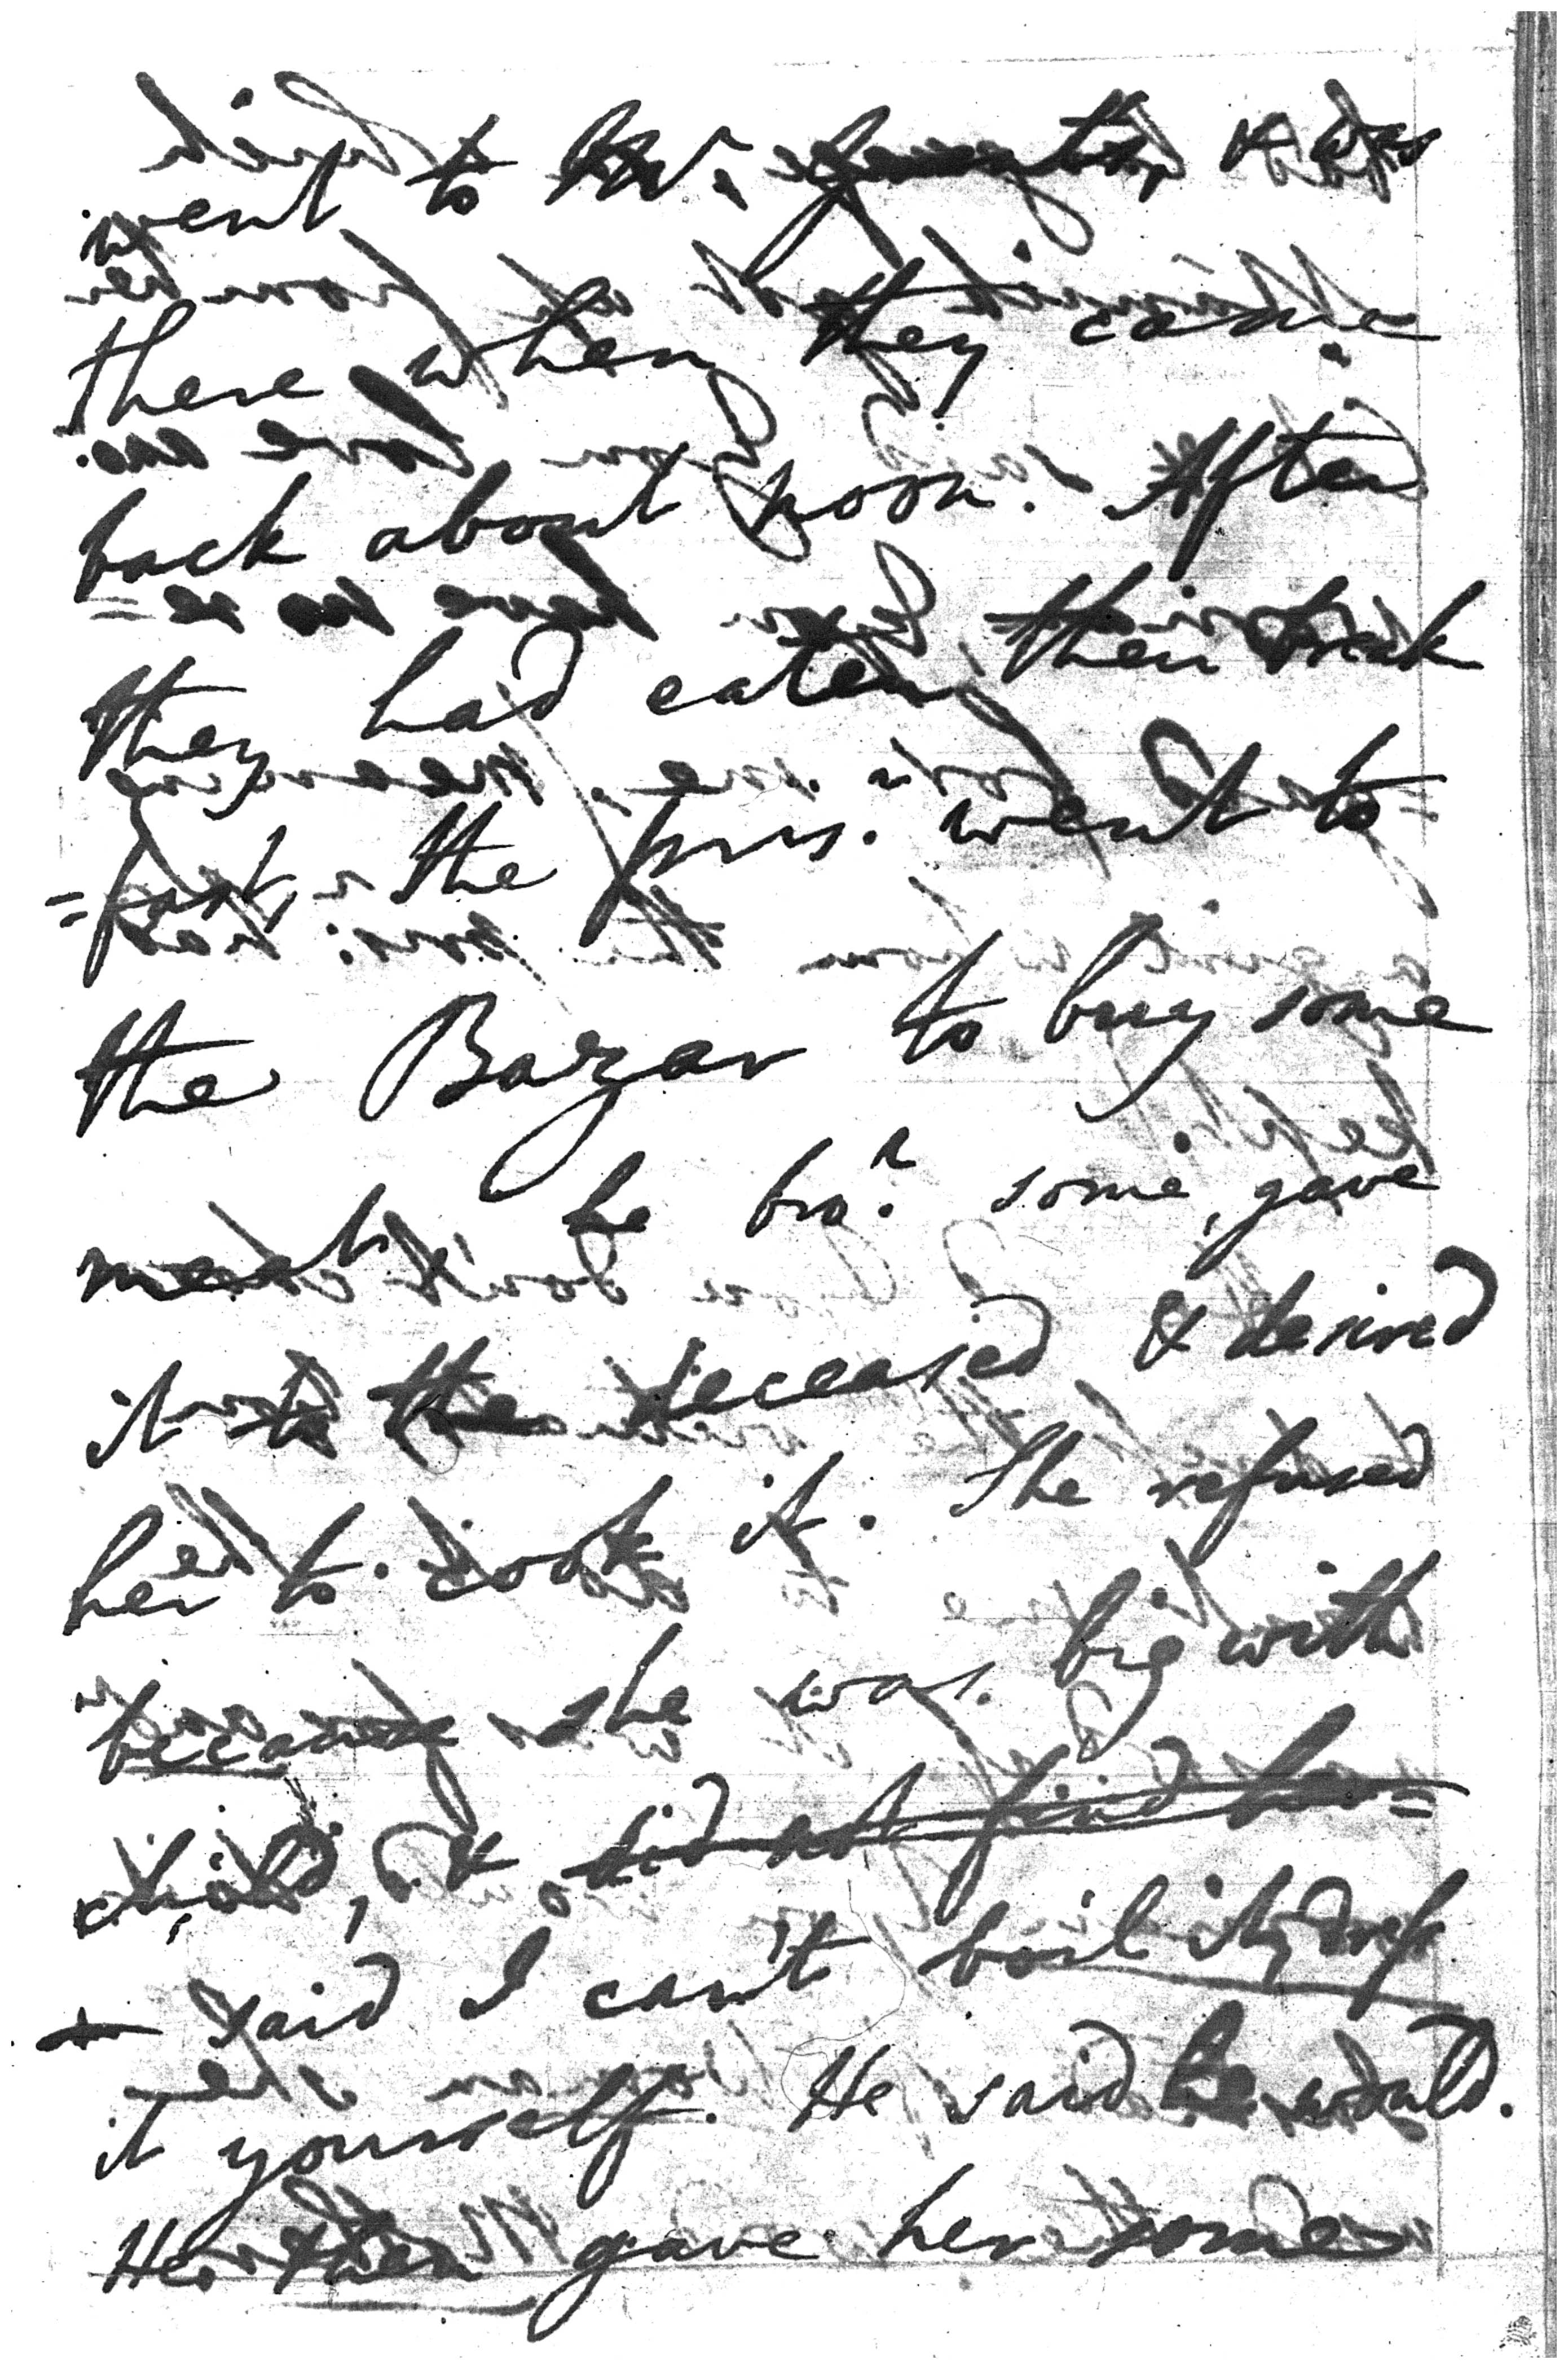 went to Mr. & was
there when they came
back about noon. After
they had eaten their break
=fast, the prisr. went to
the Bazar to buy some
meat, he bro.t some, gave
it to the deceased & desired
her to cook it. She refused
because she was big with
child, & did not find her=
said I can't boil it, dress
it yourself. He said he would.
He then gave her some